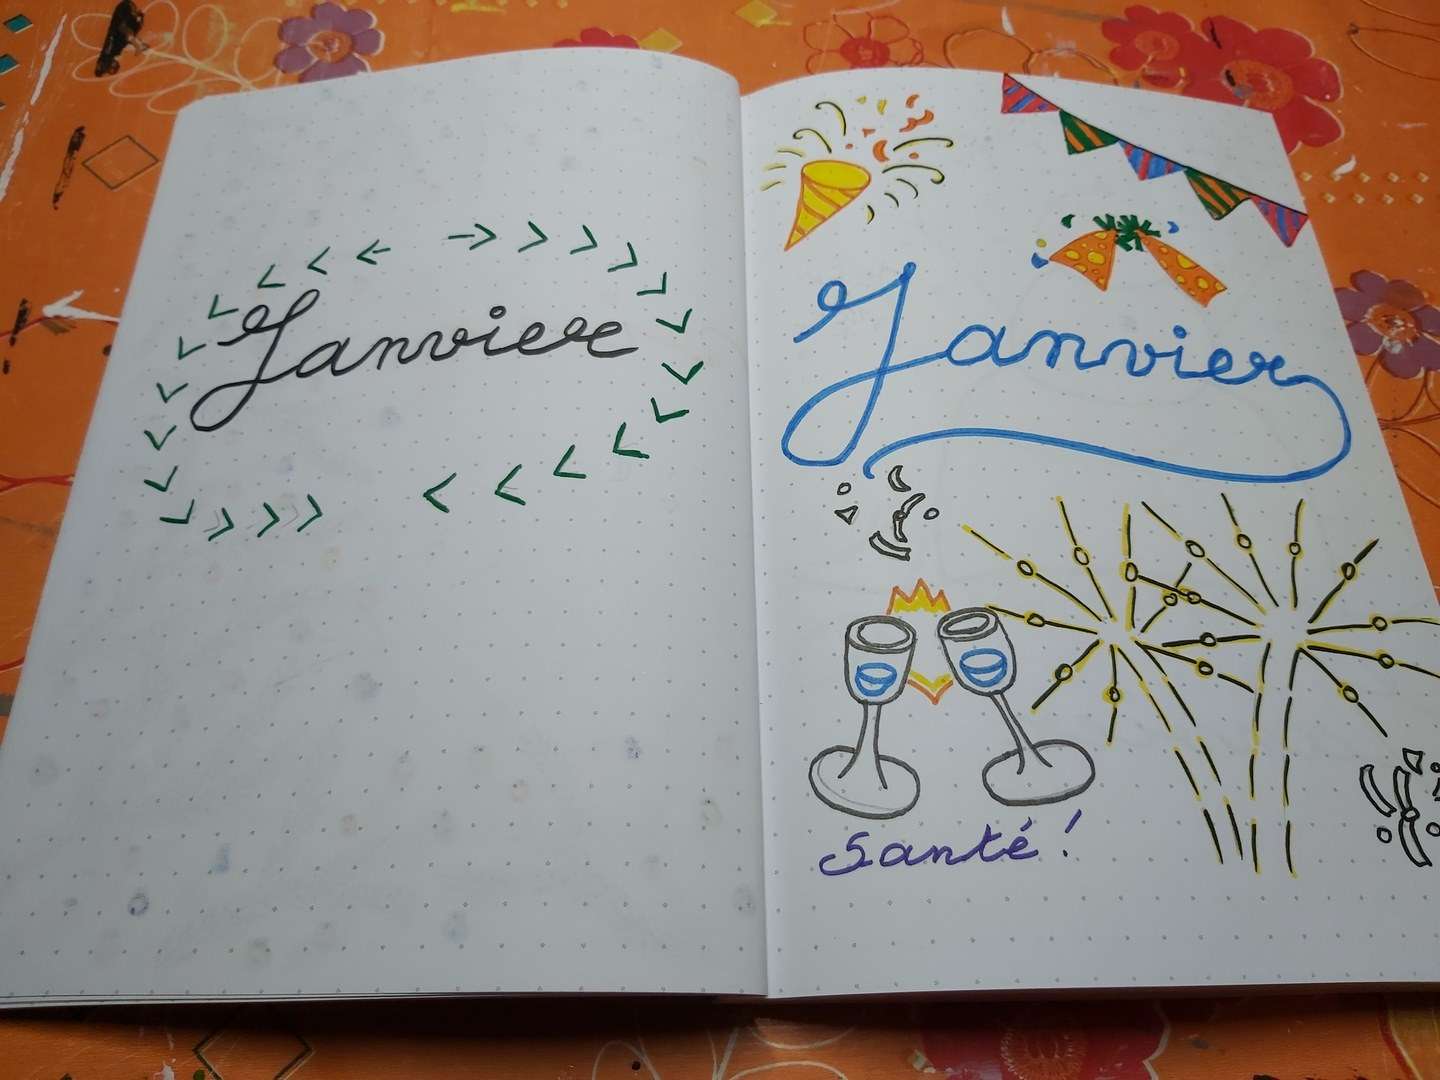 Janvier
Janvier
Santé !